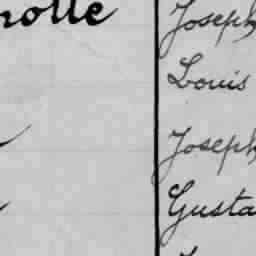 notte Joseph
Louis
Joseph
Gusta